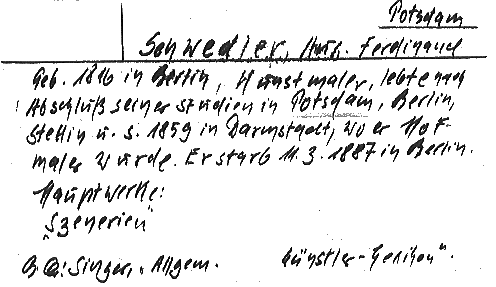 Potsdam
Schwedler, Aug. Ferdinand
Geb. 1816 in Berlin, Kunstmaler, lebte nach
Abschluß seiner Studien in Potsdam, Berlin,
Stettin u. s. 1859 in Darmstadt, wo er Hof-
maler wurde. Er starb 11.3.1887 in Berlin.
Hauptwerke:
"Szenerien"
Singer, Allgem. Künstler-Lexikon".